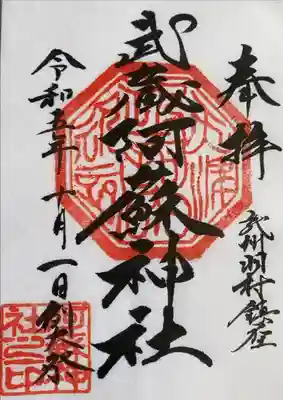 奉拝
武州羽村鎮座
武蔵阿蘇神社
令和五年十月一日例大祭